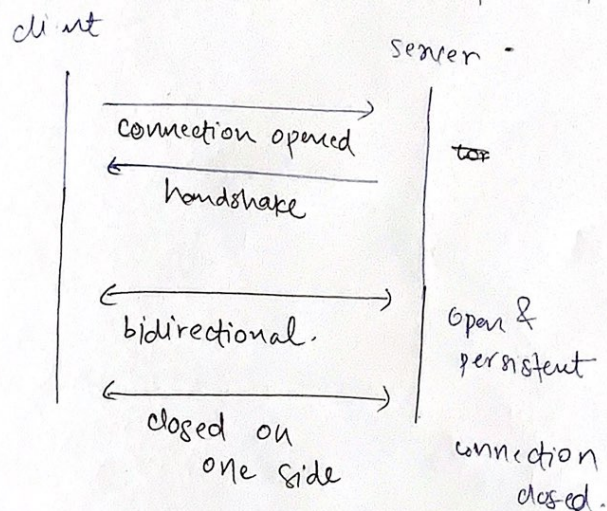 client
server
connection opened
handshake
bidirectional.
open &
persistent
closed on
one side
connection
closed.